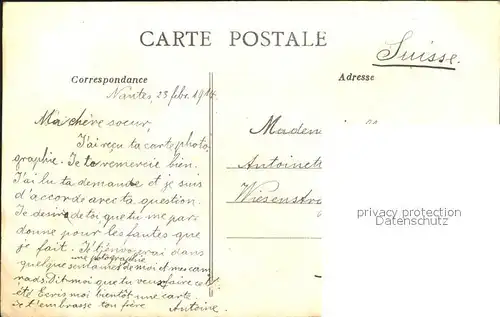 CARTE POSTALE
Suisse.
Correspondance
Adresse
Nantes, 23 febr. 1914.
Ma chère soeur,
J'ai reçu ta carte photo
graphie. Je te remercie bien.
J'ai lu ta demande et je suis
d'accorde avec ta question.
Je demande de toi, que tu me par-
donne pour les fautes que
je fait. Je t'envoi dans
une photographie
quelque semaines de moi et mes cam
rads. Dit moi que tu veux faire cet
été. Ecris moi bientôt une carte.
Je t'embrasse ton frère
Antoine.
Madem
Antoinett
Wiesenstr
privacy protection
VEREDELTER DATENSCHUTZ